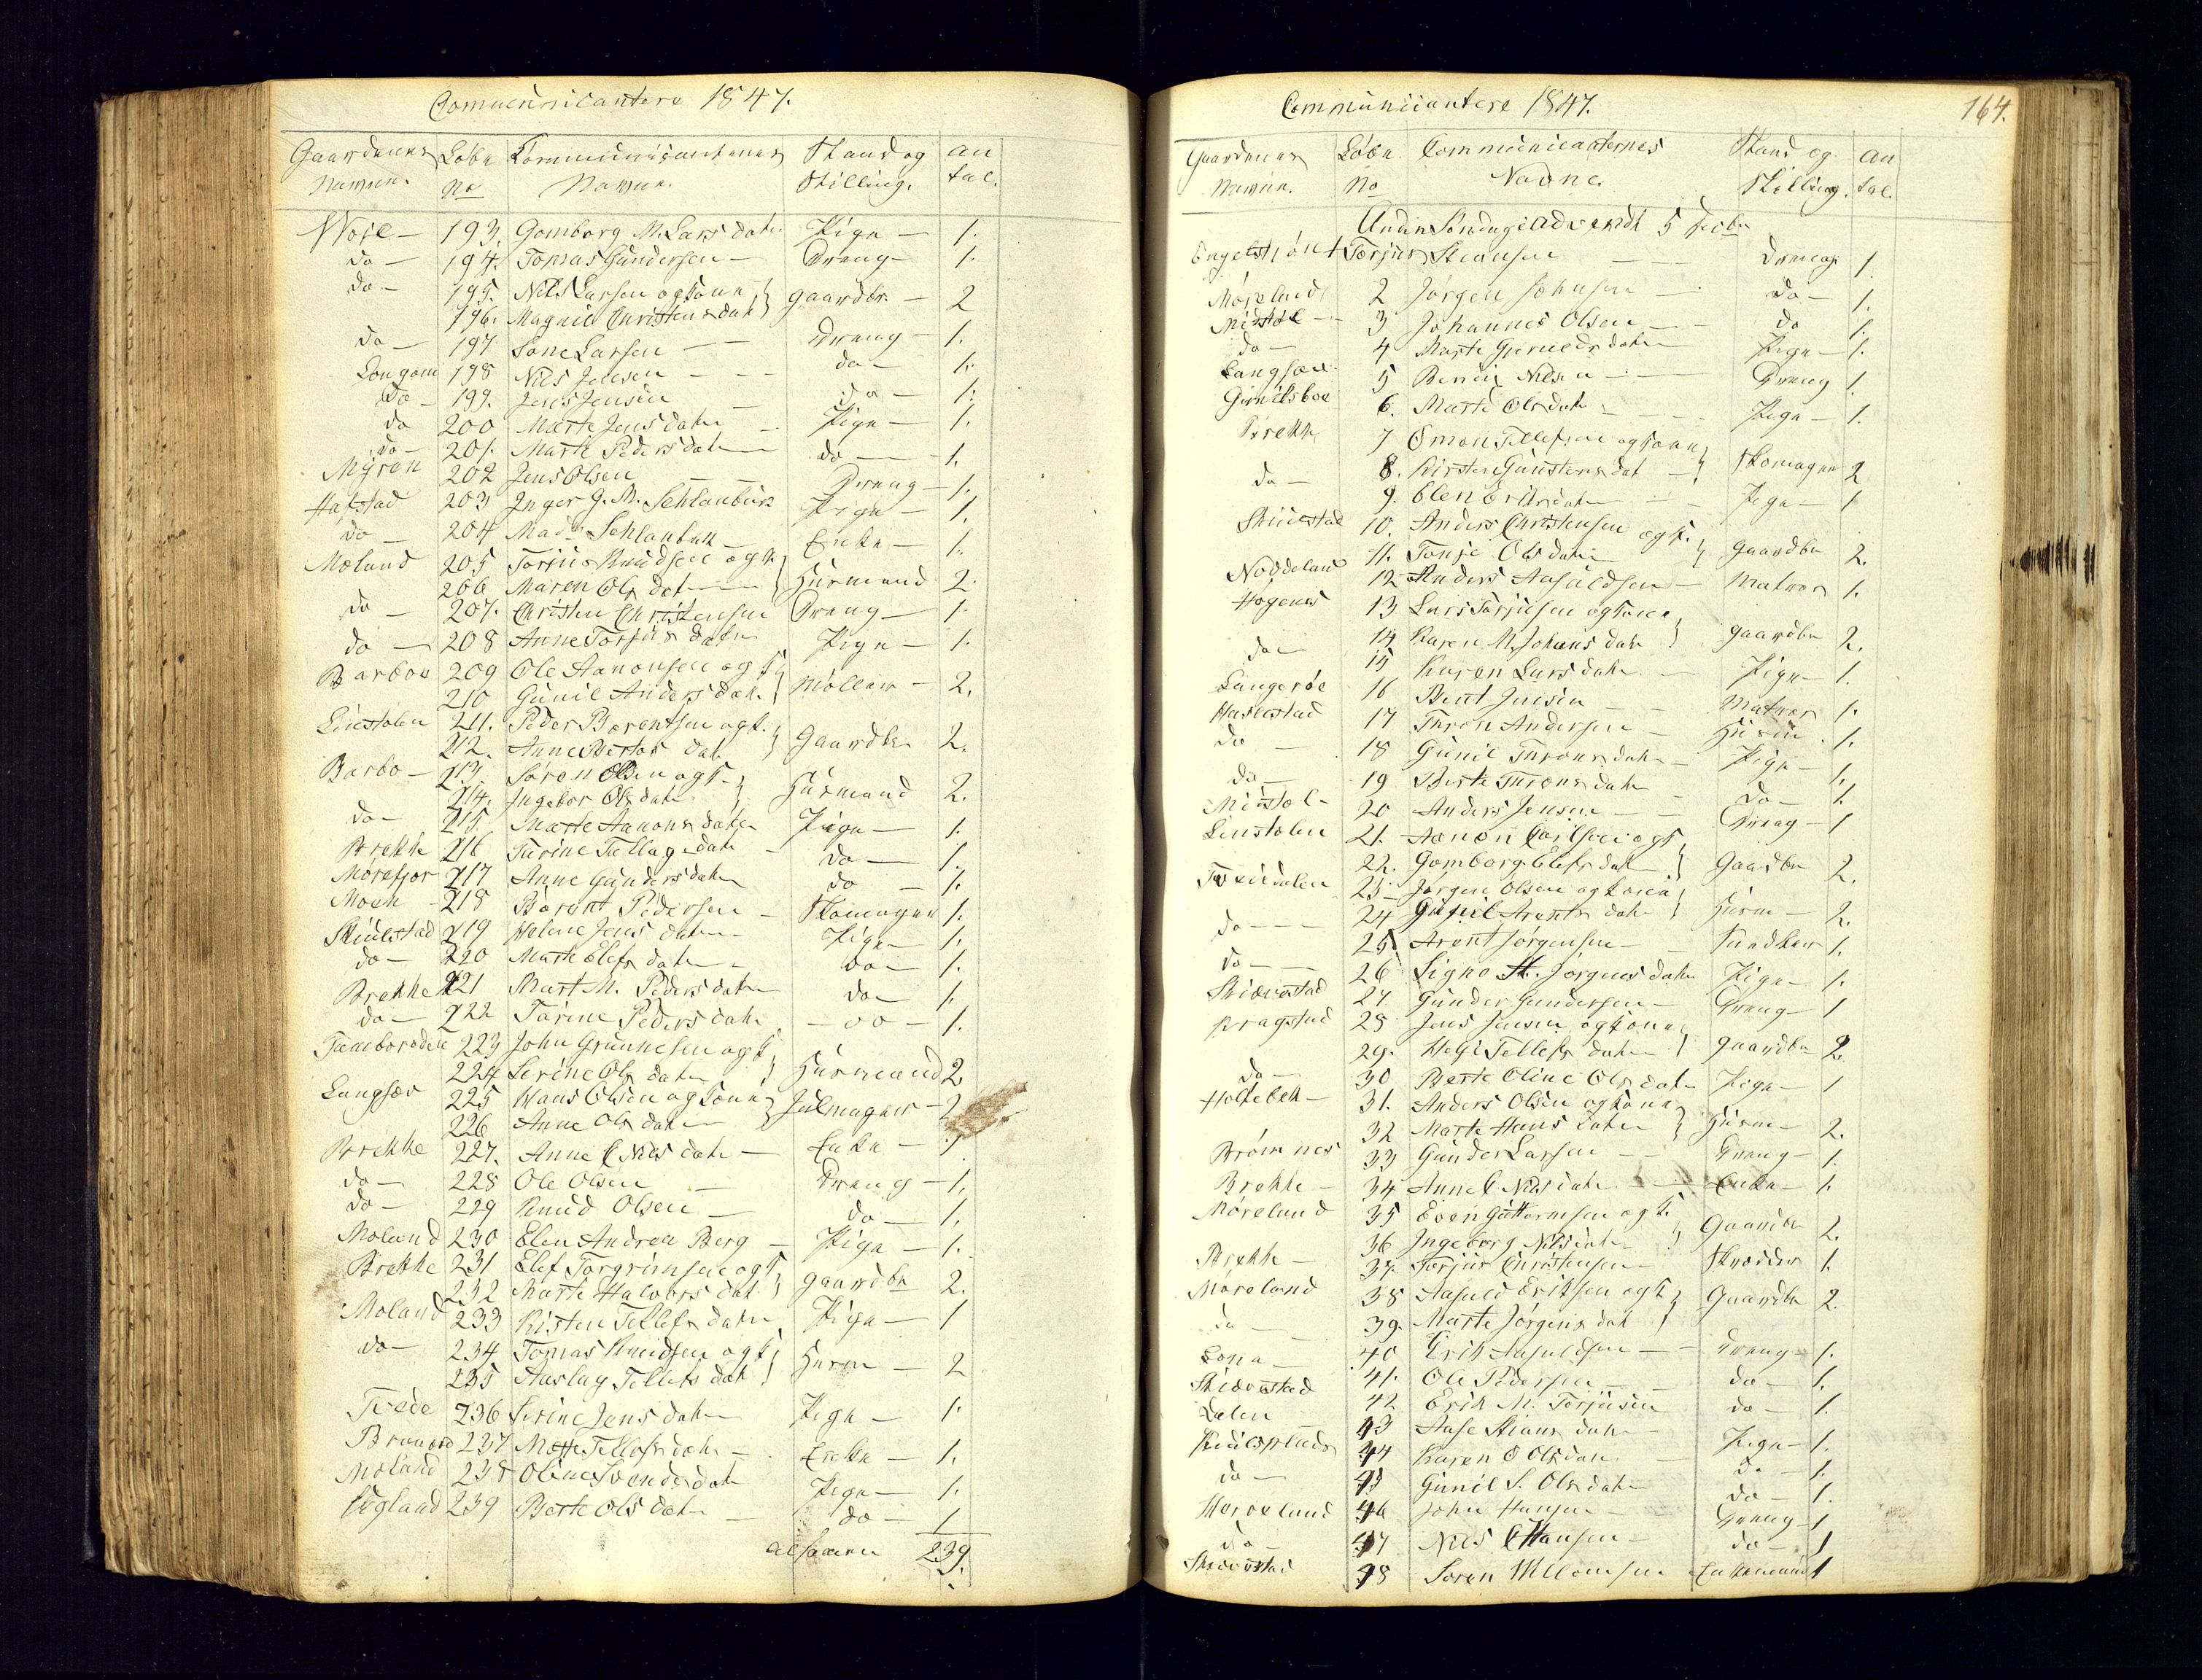 Communicantere 1847.
Gaardenes Løbe Communicanternes Stand og An
Navne. No Navne. Stilling. tal.
193. Gomborg M. Lars dater Pige — 1.
do — 194. Tomas Gundersen — Dreng — 1.
do — 195. Nils Larsen og Kone Gaardbr. — 2
196. Magnil Christens dat
do — 197 Lars Larsen — — Dreng — 1.
198 Nils Jensen — — — do — 1.
do — 199. Jens Jensen do — 1.
do 200 Marte Jens dater Pige — 1.
do — 201. Marte Peders dater do — 1.
Myren 202 Jens Olsen — — Dreng — 1.
Hafstad 203 Inger J. M. Schlanbusk Pige — 1.
do — 204 Mad. Schlanbusk — Enke — 1.
Moland 205 Torjus Knudsen og K. Husmand 2.
206 Maren Ols dater
do — 207. Christen Christensen Dreng — 1.
do — 208 Anne Torjus dater Pige — 1.
Barboe 209 Ole Aanonsen og K Møller — 2.
210 Gunil Anders dater
Linstølen 211. Peder Berentsen og K. Gaardbr 2.
212. Anne dat
Barbo — 213. Søren Olsen og K — Husmand 2.
214. Ingebor Ols dater
do — 215. Marte Aanons dater Pige — 1.
Brekke 216 Turine Tellags dater do — 1.
Mørefjor 217 Anne Gunders dater do — 1.
Moen — 218 Berent Pedersen — Skomager 1.
Skiulestad 219 Helene Jens dater — Pige — 1.
do — 220 Marte Elefs dater — do — 1.
Brekke 221 Mart M. Peders dater do — 1.
do — 222 Tarine Peders dater — do — 1.
223 John Grunnesen og K Husmand 2
224 Serine Ols dater
Langsæv 225 Hans Olsen og Kone Julmager — 2
226 Anne Ols dater
Brekke 227. Anne C Nils dater — Enke — 1
do — 228 Ole Olsen — Dreng — 1.
do — 229 Knud Olsen — do — 1.
Moland 230 Elen Andrea Berg — Pige — 1.
Brekke 231 Elef Torgrimsen og K Gaardbr 2.
232 Marte Halvors dat
Moland 233 Kisten Tellefs dater Pige — 1
do — 234 Tomas Knudsen og K Husm — 2
235 Aaslaug Tellefs dat
Tvede 236 Serine Jens dater Pige — 1.
237 Marte Tellefs dater — Enke — 1.
Moland 238 Oline Svends dater Pige — 1.
Uglaand 239 Berte Ols dater — do — 1
alsamen 239.
Communicantere 1847. 164.
Gaardenes Løbe Communicanternes Stand og An
Navne. No Navne. Stilling. tal.
Anden Søndag i Advendt 5 Decbr
1 Torjus Steansen — — Dreng 1.
Møreland 2 Jørgen Johnsen — do — 1.
Midtøl — 3 Johannes Olsen — — do 1.
do — 4 Marte Gjeruldsdater Pige — 1.
Langsæv 5 Nilsen — — Dreng 1.
6. Marte Olsdater — — Pige — 1.
Brekke 7 Omon Tellefsen og Kone Skomager 2
8. Kirsten Gunstens dat —
do — 9. Elen Eriks dater — Pige — 1
Skiulestad 10. Anders Christensen og K. Gaardbr 2.
11. Tonje Ols dater
Noddeland 12 Anders Aasuldsen — Matros 1.
Høgenes 13 Lars Torjusen og Kone Gaardbr 2.
14 Karen M. Johans dater
do — 15 Karen Lars dater — Pige — 1.
Langerøe 16 Bent Jensen — — Matros 1.
Haslestad 17 Tron Andersen — Husm. 1.
do — 18 Gunil Trons dater — Pige — 1.
do — 19 Berte Trons dater — do — 1.
Midtøl — 20 Anders Jensen — — Dreng — 1
Linstølen 21. Aanon Carlsen og K Gaardbr 2.
22. Gomborg Elefs dater
23. Jørgen Olsen og Kone Husm — 2.
24 Gunil Arents dater
do — — — 25. Arent Jørgensen — 1.
do — — 26 Signe M. Jørgens dater Pige — 1.
Skiævestad 27 Gunder Gundersen — Dreng — 1
Kragstad 28 Jens Jensen og Kone Gaardbr 2.
29. Helje Tellefs dater
do — 30 Berte Oline Ols dater Pige — 1
Holtebek — 31. Anders Olsen og Kone Husm — 2.
32 Marte Hans dater
Bromnes 33 Gunder Larsen — — Dreng — 1.
Brekke — 34 Anne C Nils dater — Enke — 1.
Møreland 35 Even Guttormsen og K Gaardbr 2.
36 Ingeborg Nils dater
Brekke — 37. Torjus Christensen — Skræder 1.
Møreland 38 Aasuld Eriksen og K Gaardbr 2.
39. Marte Jørgens dat
do — 40 Erik Aasuldsen — — Dreng — 1.
Lona — 41. Ole Pedersen — — do — 1.
Skiævestad 42 Erik M. Torjusen do — 1.
Dalen — 43 Aase Stians dater Pige — 1.
44 Karen O Ols dater — do — 1.
do — 45 Gunil S. Ols dater do — 1.
46 John Hansen — Dreng — 1
do — 47 Nils C Hansen — do — 1
Skiævestad 48 Søren Willomsen Enkemand 1